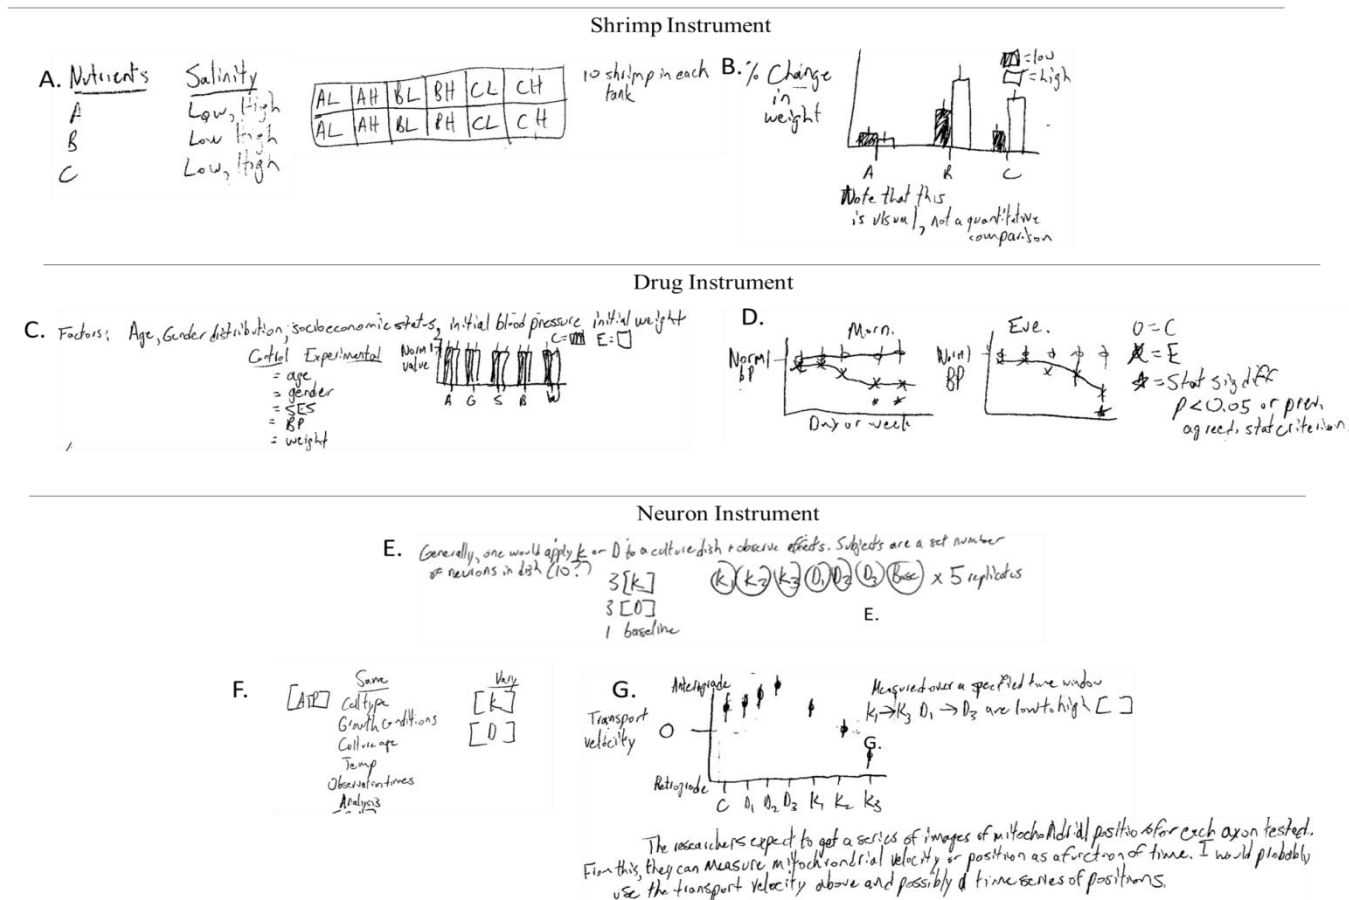 Shrimp Instrument
A. Nutrients Salinity
A Low, High
B Low High
C Low, High
AL AH BL BH CL CH
AL AH BL BH CL CH
10 shrimp in each
tank
B. % Change
in
weight
=low
=high
A B C
Note that this
is visual, not a quantitative
comparison
Drug Instrument
C. Factors: Age, Gender distribution, socioeconomic status, initial blood pressure initial weight
Control Experimental
= age
= gender
= SES
= BP
= weight
C= E:
Norml
value
A G S B W
D. Morn.
Norml
BP
Day or week
Eve.
Norml
BP
O = C
X = E
* = Stat sig diff
P<0.05 or prev.
agreed. stat criterion.
Neuron Instrument
E. Generally, one would apply K or D to a culture dish + observe effects. Subjects are a set number
of neurons in dish (10?)
3 [K]
3 [D]
1 baseline
K1 K2 K3 D1 D2 D3 Base x 5 replicates
E.
F. Same Vary
[ATP] Cell type [K]
Growth conditions [D]
Culture age
Temp
Observation times
Analysis
G. Anterograde
Transport
velocity O
Retrograde
C D1 D2 D3 K1 K2 K3
Measured over a specified time window
K1→K3 D1→D3 are low to high [ ]
G.
The researchers expect to get a series of images of mitochondrial positions for each axon tested.
From this, they can measure mitochrondrial velocity or position as a function of time. I would probably
use the transport velocity above and possibly a time series of positions.